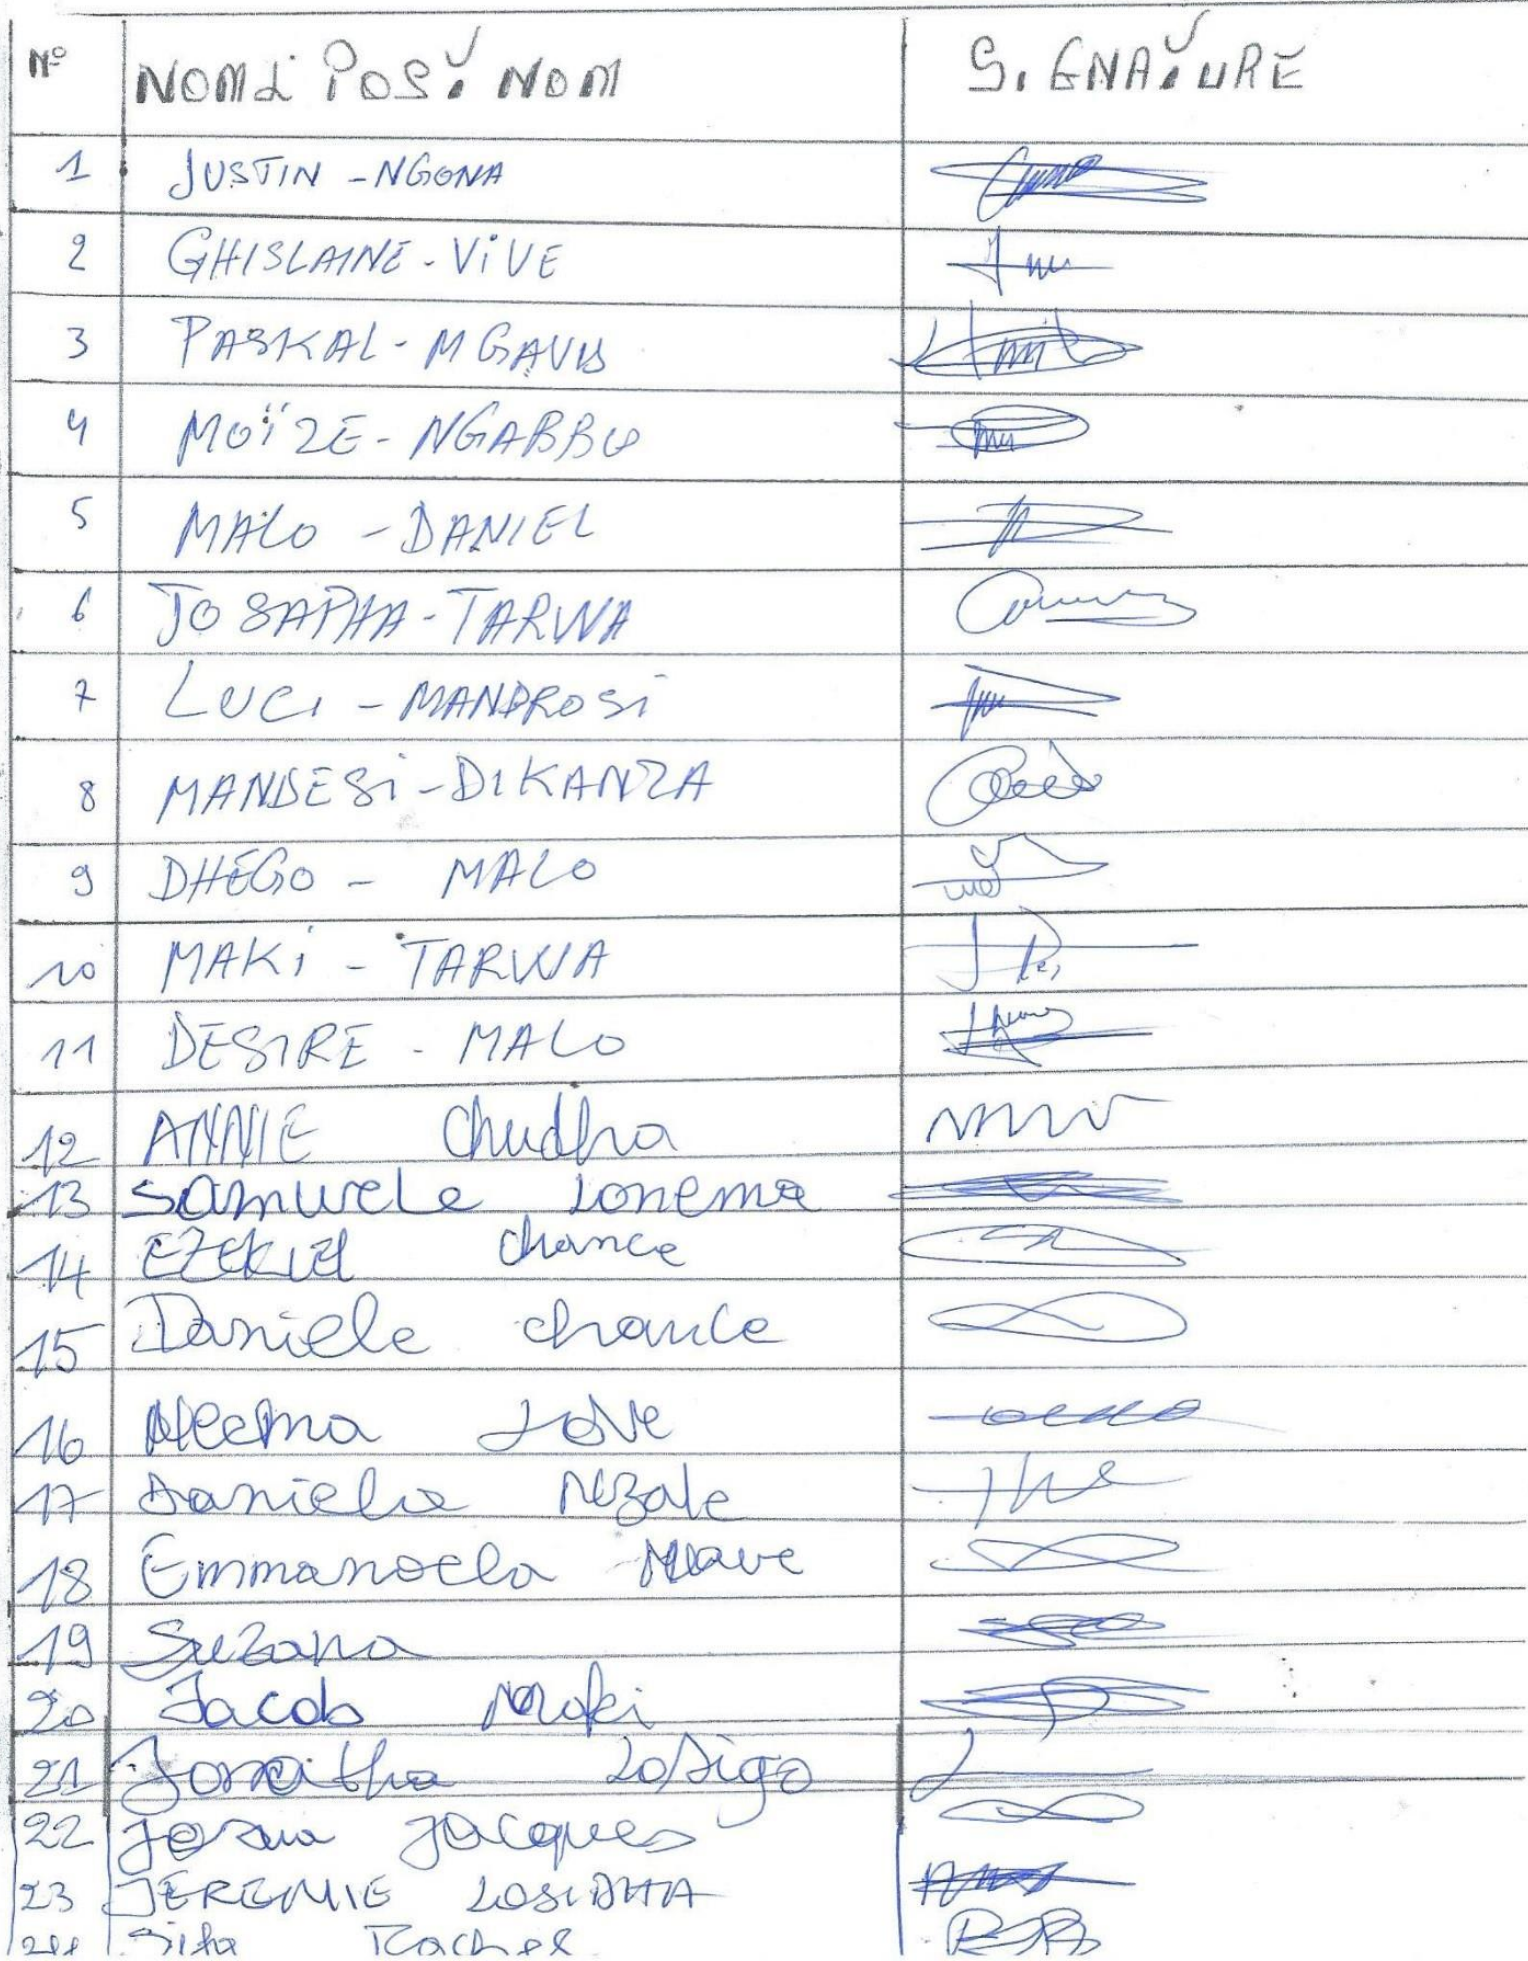 N° NOM & POST NOM SIGNATURE
1 JUSTIN - NGONA
2 GHISLAINE - ViVE
3 PASKAL - MGAVU
4 MOÏZE - NGABBU
5 MALO - DANIEL
6 JOSAPHA - TARWA
7 LUCI - MANDROSi
8 MANDESi - DIKANZA
9 DHEGO - MALO
10 MAKi - TARWA
11 DESIRE - MALO
12 ANNIE Chudha
13 Samuele Lonema
14 EZEKIEl chance
15 Daniele chance
16 Neema Love
17 Daniela Nzale
18 Emmanoela Mave
19 Suzana
20 Jacob Maki
21 Jonatha Lodigo
22 Josua Jacques
23 JEREMIE LOSIDHA
24 Sifa Rachel